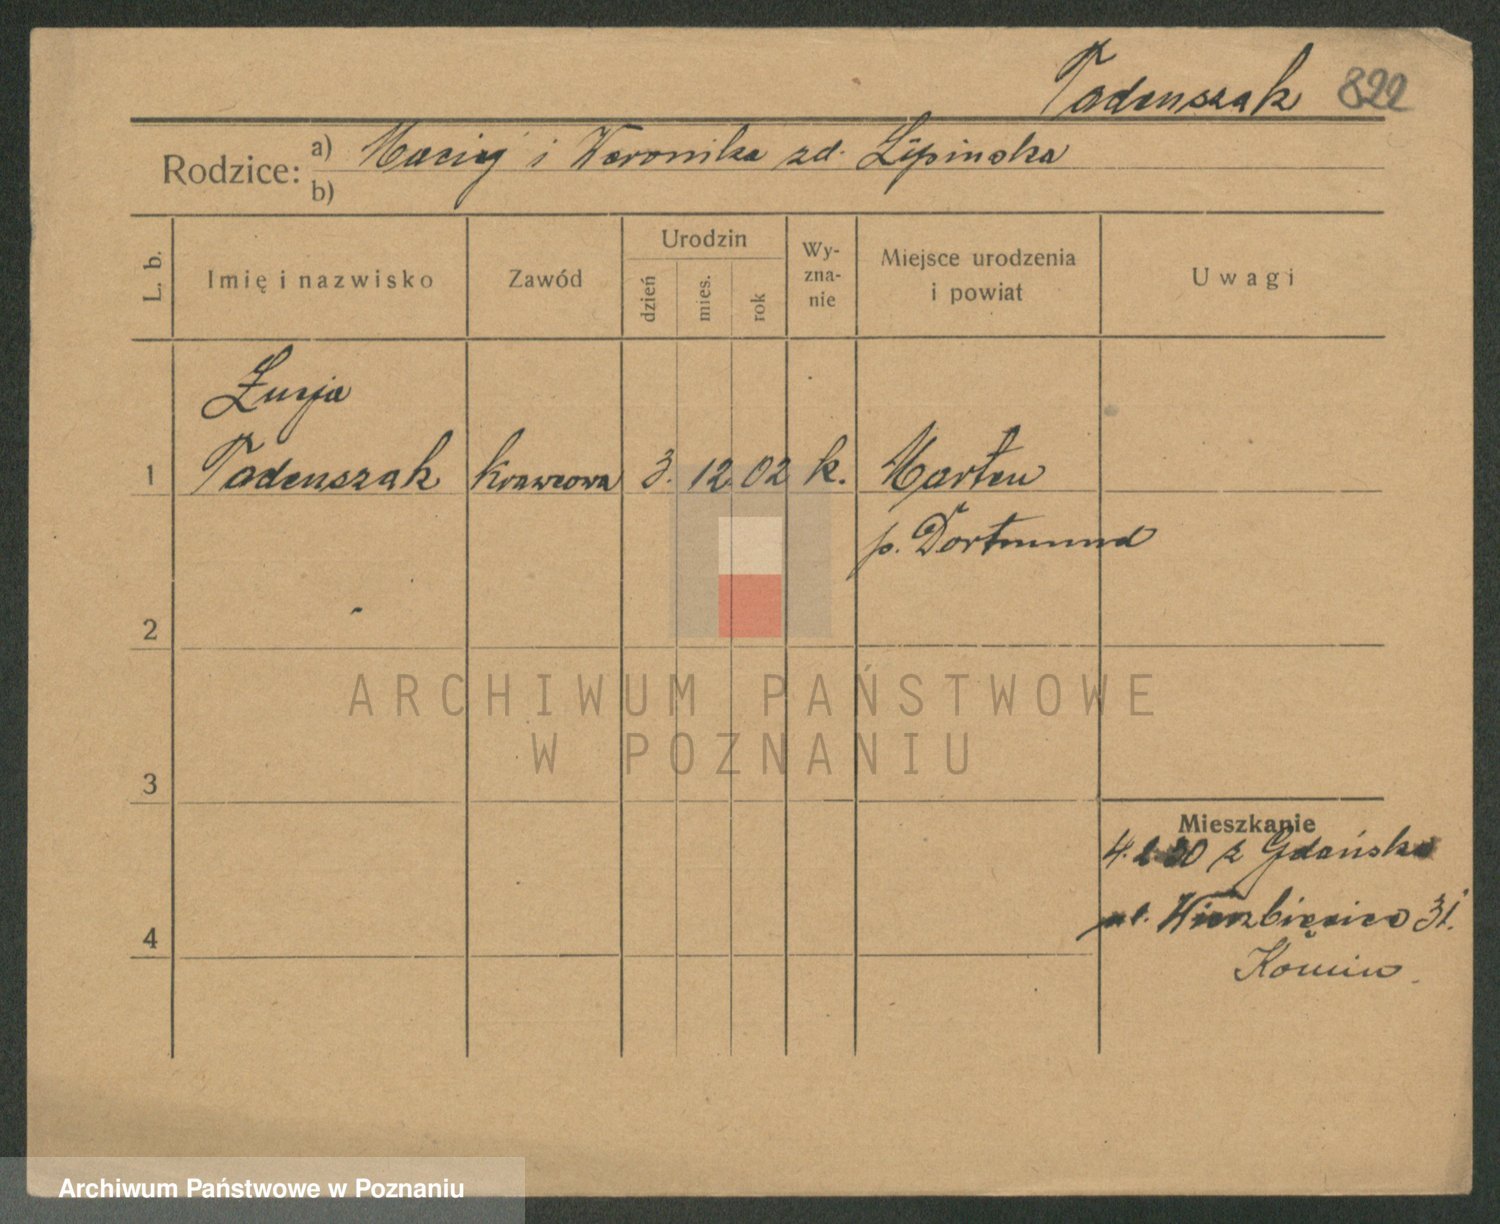 Tadeuszak 822
Rodzice: a) Maciej i Weronika zd. Lipinska
b)
L. b.
Imię i nazwisko
Zawód
Urodzin
dzień
mies.
rok
Wy-
zna-
nie
Miejsce urodzenia
i powiat
Uwagi
Łucja
1 Tadeuszak Krawcowa 3. 12 02 k. Marten
p. Dortmund
2
3
4
Mieszkanie
4. 20 z Gdańska
ul. Wierzbięcice 31.
Komin
ARCHIWUM PAŃSTWOWE
W POZNANIU
Archiwum Państwowe w Poznaniu